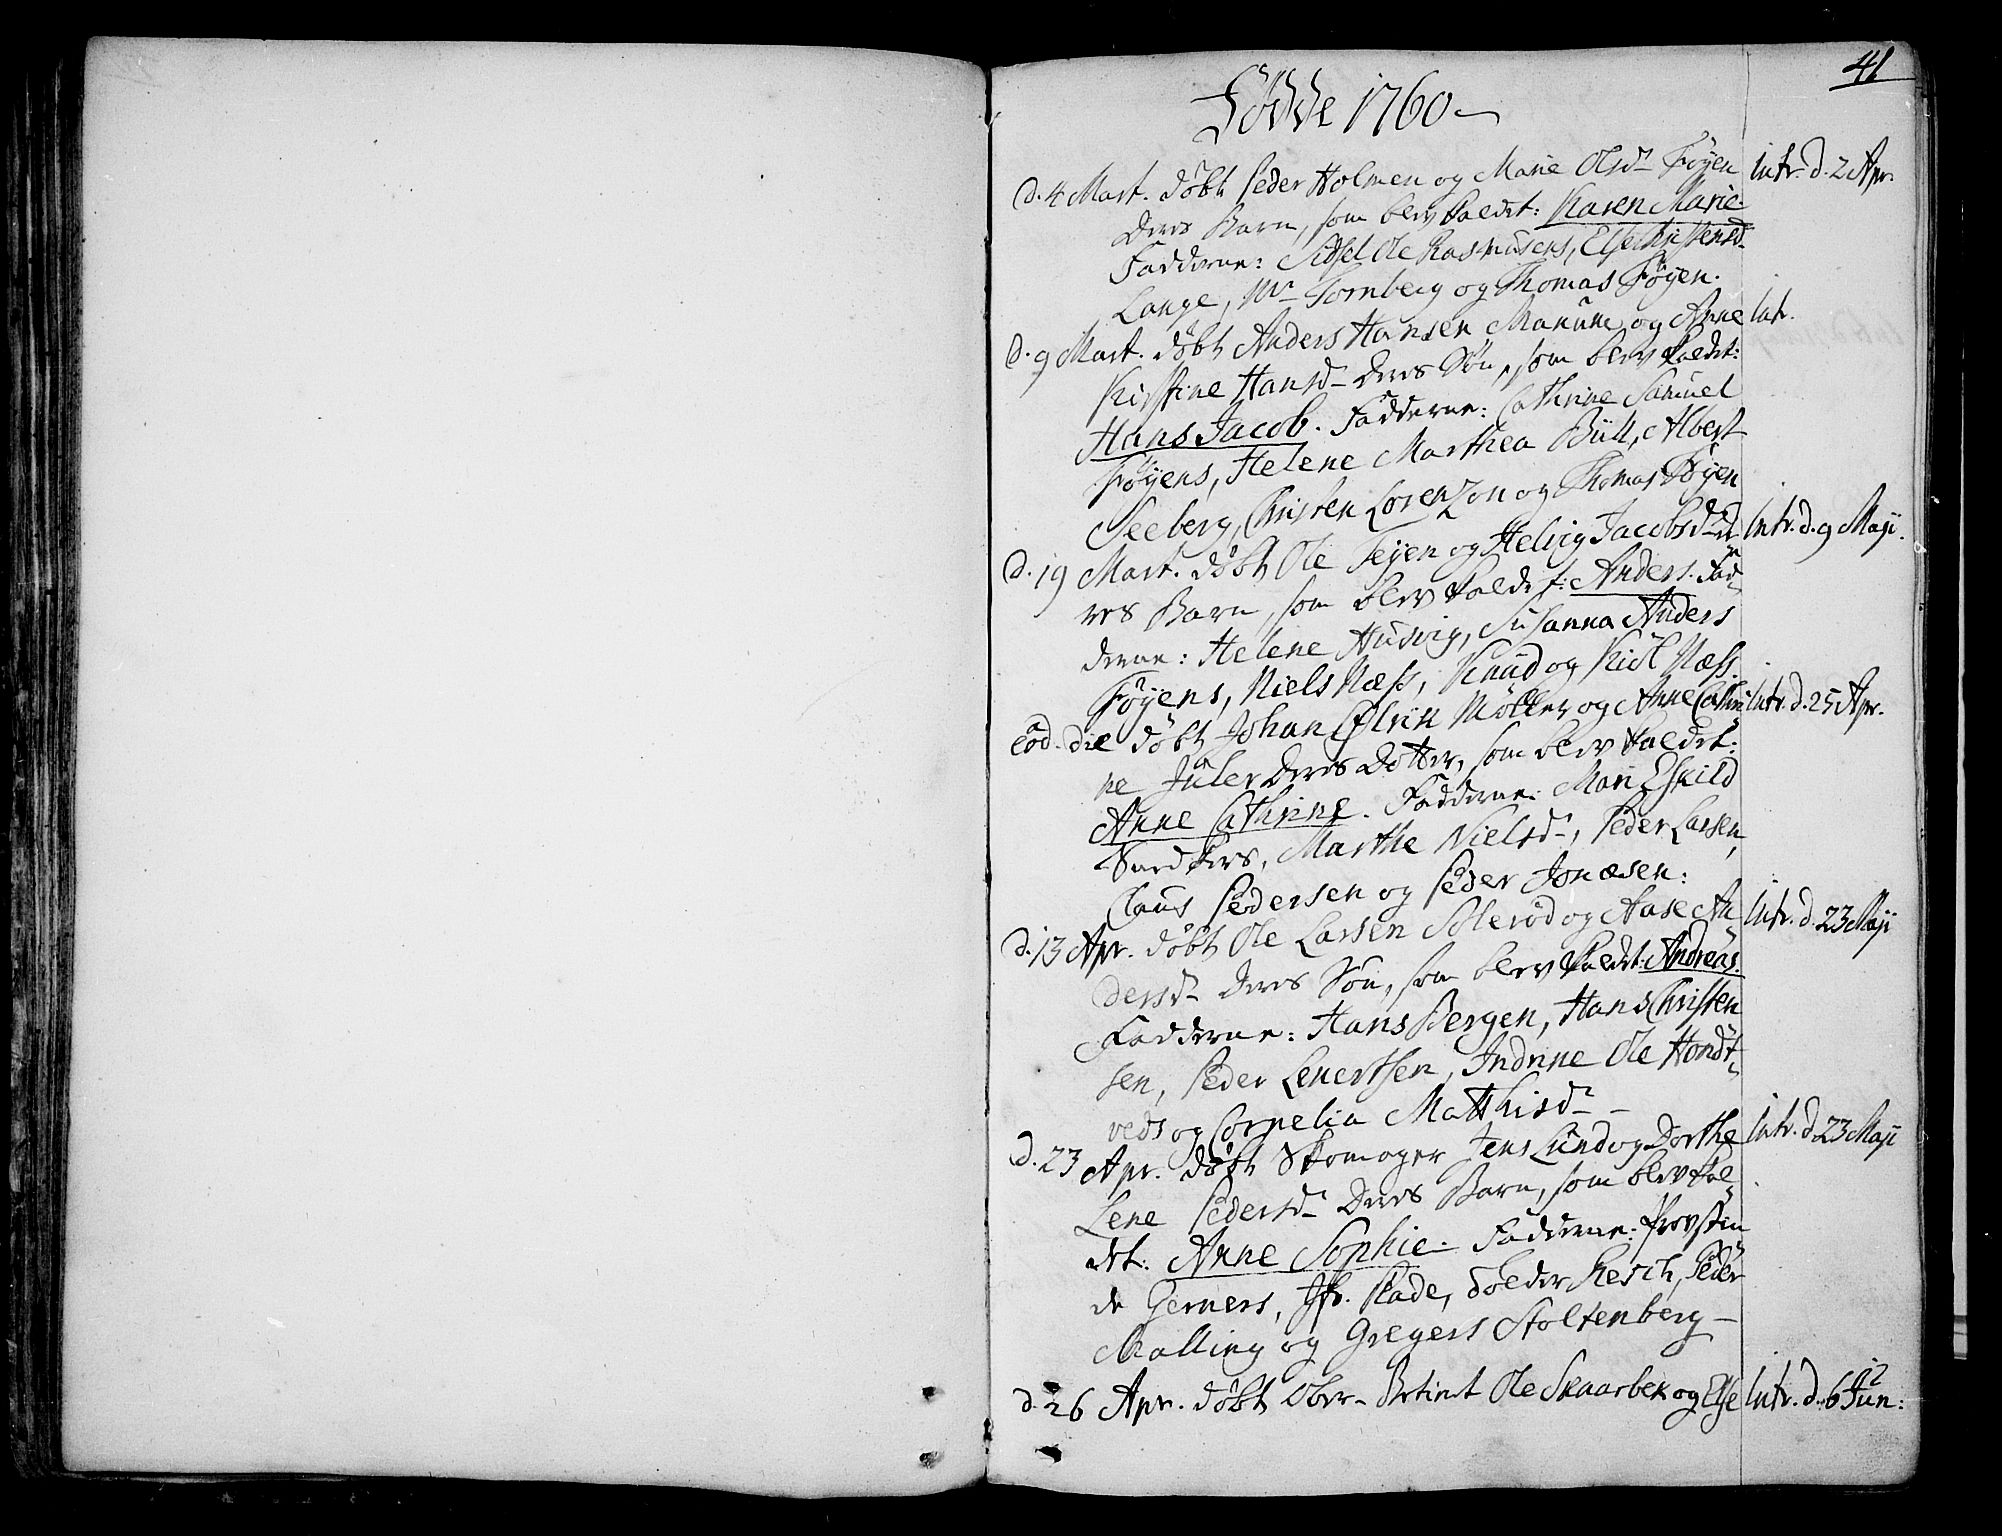 41
Fødde 1760
d. 4 Mart. døbt Peder Holmen og Marie Olsd. Føyen
Intr. d. 2 Apr.
Deres Barn, som blev kaldet: Karen Marie.
Fadderne: Sidsel Ole Rasmusens, Else
Lange, Mr. Tornberg og Thomas Føyen.
d. 9 Mart. døbt Anders Hansen Manum og Anne
Intr.
Kirstine Hansd. Deres Søn, som blev kaldet:
Hans Jacob. Fadderne: Cathrine Samuel
Føyens, Helene Marthea Bull, Albert
Seeberg, Christen Lorenzon og Thomas Føyen
d. 19 Mart. døbt Ole Teyen og Helvig Jacobsd. de
Intr. d. 9 Maji.
res Barn, som blev kaldet: Anders. Fad
derne: Helene Husvig, Susanna Anders
Føyens, Niels Næss, Knud og Næss.
eod. die døbt Johan Møller og Anne Cathri
Intr. d. 25 Apr.
ne Juler Deres Dotter, som blev kaldet:
Anne Cathrine. Fadderne: Mari Eskild
Marthe Nielsd., Peder Larsen,
Claus Pedersen og Peder Jonæsen:
d. 13 Apr. døbt Ole Larsen Solerød og Aase An
Intr. d. 23 Maji
dersd. Deres Søn, som blev kaldet: Andreas.
Fadderne: Hans Bergen, Hans Christen
sen, Peder Lenertsen, Indrine Ole Hondt
veds og Cornelia Matthisd.
d. 23 Apr. døbt Skomager Jens Lund og Dorthe
Intr. d. 23 Maji
Lene Pedersd. Deres Barn, som blev kal
det: Anne Sophie. Fadderne: Provstin
de Gerners, Jfr. Rade, Tolder Resch, Peder
Malling og Gregers Stoltenberg
d. 26 Apr. døbt Ober-Betient Ole Skaarbek og Else
Intr. d. 6 Jun:
12